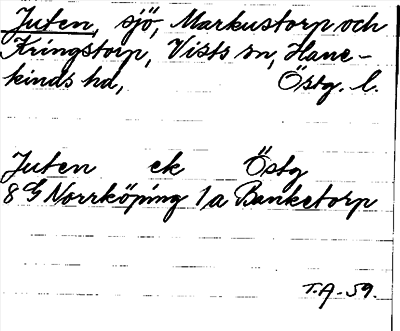 Juten, sjö, Markustorp och
Kringstorp, Vists sn, Hane-
kinds hd, Östg. l.
Juten ek Östg
8 G Norrköping 1/a Banketorp
T.A. 59.